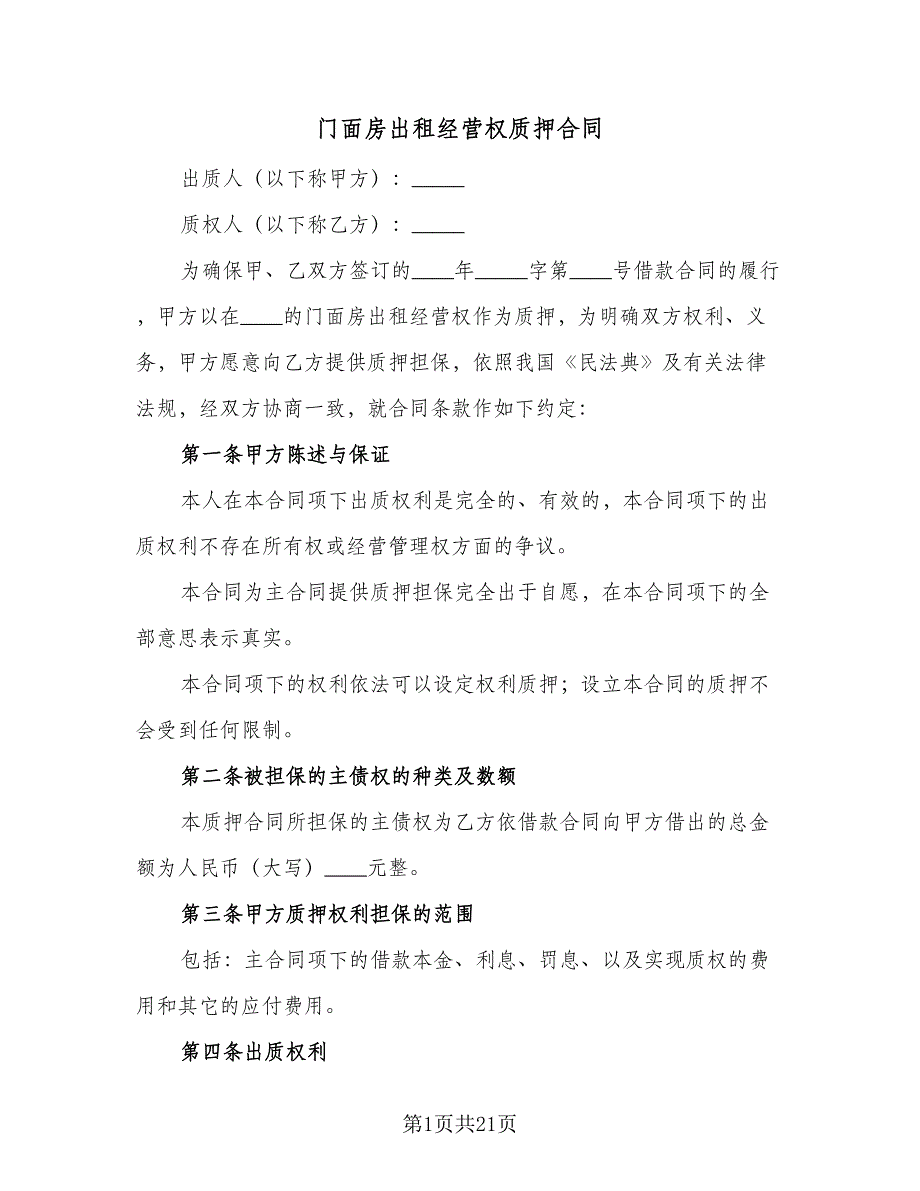 门面房出租经营权质押合同
出质人（以下称甲方）：_____
质权人（以下称乙方）：_____
为确保甲、乙双方签订的____年_____字第____号借款合同的履行
，甲方以在____的门面房出租经营权作为质押，为明确双方权利、义
务，甲方愿意向乙方提供质押担保，依照我国《民法典》及有关法律
法规，经双方协商一致，就合同条款作如下约定：
第一条甲方陈述与保证
本人在本合同项下出质权利是完全的、有效的，本合同项下的出
质权利不存在所有权或经营管理权方面的争议。
本合同为主合同提供质押担保完全出于自愿，在本合同项下的全
部意思表示真实。
本合同项下的权利依法可以设定权利质押；设立本合同的质押不
会受到任何限制。
第二条被担保的主债权的种类及数额
本质押合同所担保的主债权为乙方依借款合同向甲方借出的总金
额为人民币（大写）____元整。
第三条甲方质押权利担保的范围
包括：主合同项下的借款本金、利息、罚息、以及实现质权的费
用和其它的应付费用。
第四条出质权利
第1页共21页